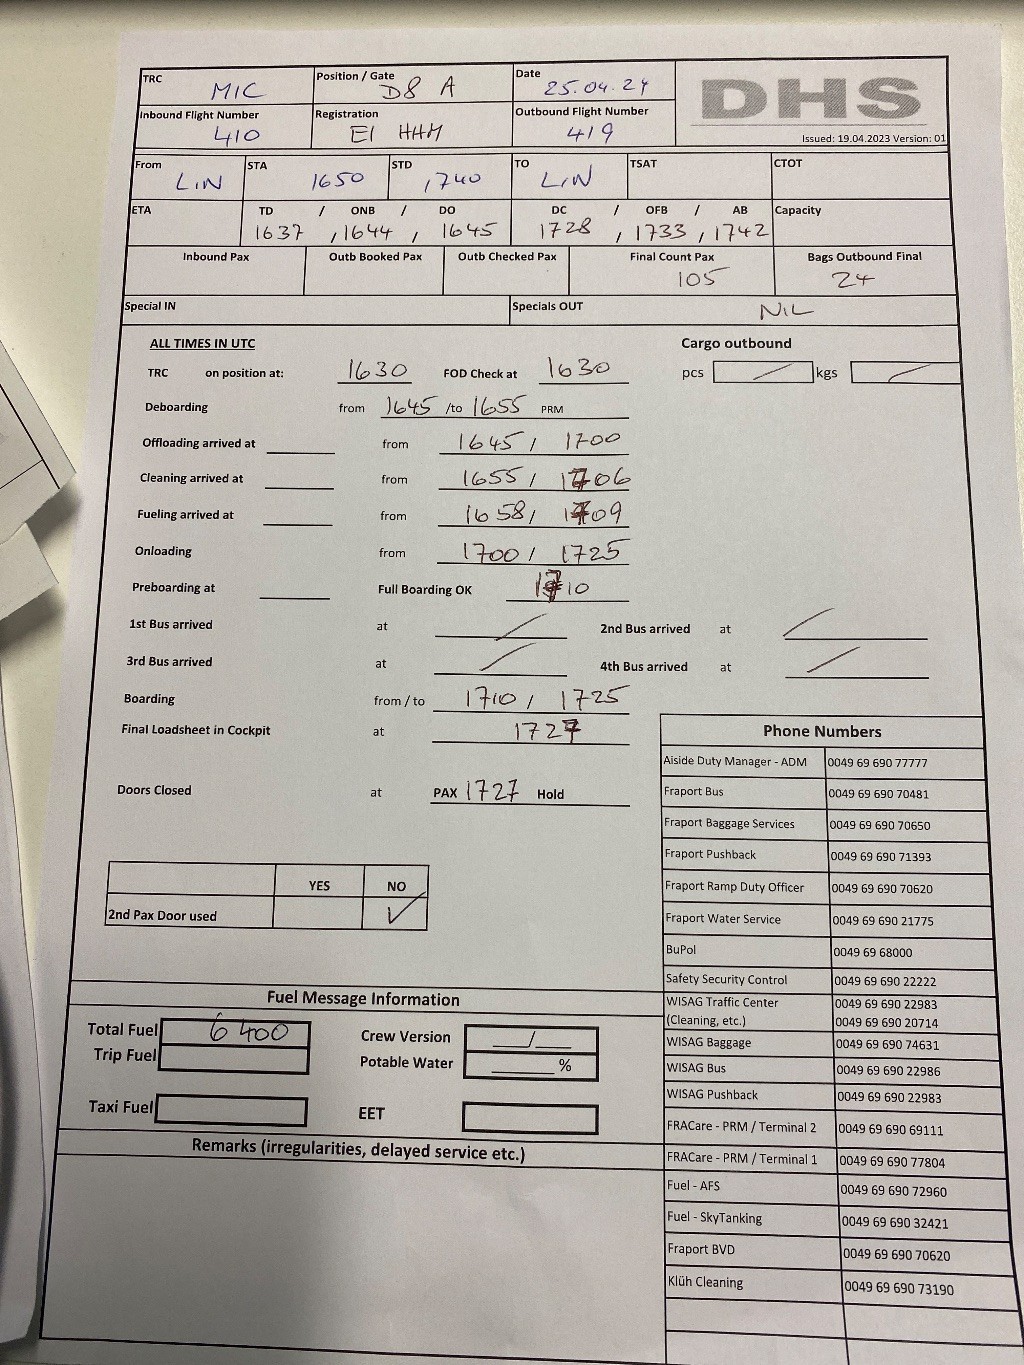 TRC MIC Position / Gate D8 A Date 25.04.24
DHS
Inbound Flight Number 410 Registration EI HHM Outbound Flight Number 419
Issued: 19.04.2023 Version: 01
From LIN STA 1650 STD 1740 TO LIN TSAT CTOT
ETA TD / ONB / DO DC / OFB / AB Capacity
1637 , 1644 , 1645 1728 , 1733 , 1742
Inbound Pax Outb Booked Pax Outb Checked Pax Final Count Pax Bags Outbound Final
105 24
Special IN Specials OUT NIL
ALL TIMES IN UTC Cargo outbound
TRC on position at: 1630 FOD Check at 1630 pcs / kgs /
Deboarding from 1645 /to 1655 PRM
Offloading arrived at from 1645 / 1700
Cleaning arrived at from 1655 / 1706
Fueling arrived at from 1658 / 1709
Onloading from 1700 / 1725
Preboarding at Full Boarding OK 1710
1st Bus arrived at / 2nd Bus arrived at /
3rd Bus arrived at / 4th Bus arrived at /
Boarding from / to 1710 / 1725
Final Loadsheet in Cockpit at 1727
Doors Closed at PAX 1727 Hold
YES NO
2nd Pax Door used ✓
Fuel Message Information
Total Fuel 6400 Crew Version /
Trip Fuel Potable Water %
Taxi Fuel EET
Remarks (irregularities, delayed service etc.)
Phone Numbers
Aiside Duty Manager - ADM 0049 69 690 77777
Fraport Bus 0049 69 690 70481
Fraport Baggage Services 0049 69 690 70650
Fraport Pushback 0049 69 690 71393
Fraport Ramp Duty Officer 0049 69 690 70620
Fraport Water Service 0049 69 690 21775
BuPol 0049 69 68000
Safety Security Control 0049 69 690 22222
WISAG Traffic Center 0049 69 690 22983
(Cleaning, etc.) 0049 69 690 20714
WISAG Baggage 0049 69 690 74631
WISAG Bus 0049 69 690 22986
WISAG Pushback 0049 69 690 22983
FRACare - PRM / Terminal 2 0049 69 690 69111
FRACare - PRM / Terminal 1 0049 69 690 77804
Fuel - AFS 0049 69 690 72960
Fuel - SkyTanking 0049 69 690 32421
Fraport BVD 0049 69 690 70620
Klüh Cleaning 0049 69 690 73190